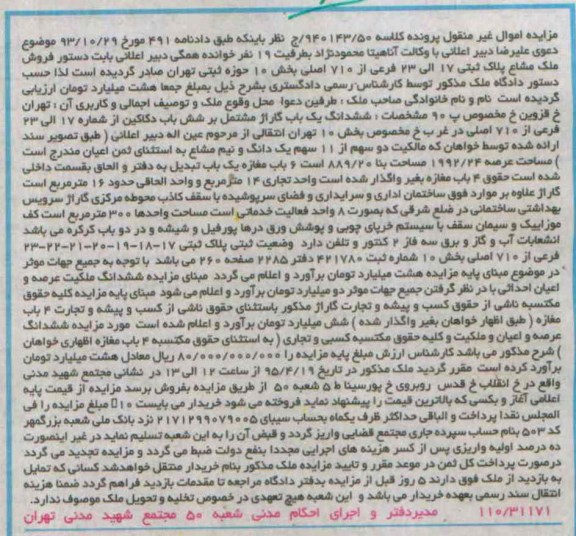 مزایده اموال غیر منقول پرونده کلاسه ۹۴۰۱۴۳/۵۰/ج نظر باینکه طبق دادنامه ۴۹۱ مورخ ۹۳/۱۰/۲۹ موضوع
دعوی علیرضا دبیر اعلائی با وکالت آناهیتا محمودنژاد بطرفیت ۱۹ نفر خوانده همگی دبیر اعلائی بابت دستور فروش
ملک مشاع پلاک ثبتی ۱۷ الی ۲۳ فرعی از ۷۱۰ اصلی بخش ۱۰ حوزه ثبتی تهران صادر گردیده است لذا حسب
دستور دادگاه ملک مذکور توسط کارشناس رسمی دادگستری بشرح ذیل بمبلغ جمعا هشت میلیارد تومان ارزیابی
گردیده است نام و نام خانوادگی صاحب ملک : طرفین دعوا محل وقوع ملک و توصیف اجمالی و کاربری آن : تهران
خ قزوین خ مخصوص پ ۹۰ مشخصات : ششدانگ یک باب گاراژ مشتمل بر شش باب دکاکین از شماره ۱۷ الی ۲۳
فرعی از ۷۱۰ اصلی در غرب خ مخصوص بخش ۱۰ تهران انتقالی از مرحوم عین اله دبیر اعلائی ( طبق تصویر سند
ارائه شده توسط خواهان که مالکیت دو سهم از ۱۱ سهم یک دانگ و نیم مشاع به استثنای ثمن اعیان مندرج است
) مساحت عرصه ۱۹۹۲/۲۴ مساحت بنا ۸۸۹/۲۰ است ۶ باب مغازه یک باب تبدیل به دفتر و الحاق بقسمت داخلی
شده است حقوق ۴ باب مغازه بغیر واگذار شده است واحد تجاری ۱۴ مترمربع و واحد الحاقی حدود ۱۶ مترمربع است
گاراژ علاوه بر موارد فوق ساختمان اداری و سرایداری و فضای سرپوشیده با سقف کاذب محوطه مرکزی گاراژ سرویس
بهداشتی ساختمانی در ضلع شرقی که بصورت ۸ واحد فعالیت خدماتی است مساحت واحدها ۳۰۰ مترمربع است کف
موزاییک و سیمان سقف با سیستم خرپای چوبی و پوشش ورق درها پورفیل و شیشه و در دو باب کرکره می باشد
انشعابات آب و گاز و برق سه فاز ۲ کنتور و تلفن دارد وضعیت ثبتی پلاک ثبتی ۱۷-۱۸-۱۹-۲۰-۲۱-۲۲-۲۳
فرعی از ۷۱۰ اصلی بخش ۱۰ شماره ثبت ۴۲۱۷۸۰ دفتر ۲۲۸۵ صفحه ۲۶۰ می باشد با توجه به جمیع جهات موثر
در موضوع مبنای پایه مزایده هشت میلیارد تومان برآورد و اعلام می گردد مبنای مزایده ششدانگ ملکیت عرصه و
اعیان احداثی با در نظر گرفتن جمیع جهات موثر دو میلیارد تومان برآورد و اعلام می شود مبنای پایه مزایده کلیه حقوق
مکتسبه ناشی از حقوق کسب و پیشه و تجارت گاراژ مذکور باستثنای حقوق ناشی از کسب و پیشه و تجارت ۴ باب
مغازه ( طبق اظهار خواهان بغیر واگذار شده ) شش میلیارد تومان برآورد و اعلام شده است مورد مزایده ششدانگ
عرصه و اعیان و ملکیت و کلیه حقوق مکتسبه کسبی و تجاری ( به استثنای حقوق مکتسبه ۴ باب مغازه اظهاری خواهان
) شرح مذکور می باشد کارشناس ارزش مبلغ پایه مزایده را ۸۰/۰۰۰/۰۰۰/۰۰۰ ریال معادل هشت میلیارد تومان
برآورد کرده است مقرر گردید ملک مذکور در تاریخ ۹۵/۴/۱۹ از ساعت ۱۲ الی ۱۳ در نشانی مجتمع شهید مدنی
واقع در خ انقلاب خ قدس روبروی خ پورسینا ط ۵ شعبه ۵۰ از طریق مزایده بفروش برسد مزایده از قیمت پایه
اعلامی آغاز و بکسی که بالاترین قیمت را پیشنهاد نماید فروخته می شود خریدار می بایست ۱۰٪ مبلغ مزایده را فی
المجلس نقدا پرداخت و الباقی حداکثر ظرف یکماه بحساب سیبای ۲۱۷۱۲۹۹۰۷۹۰۰۵ نزد بانک ملی شعبه بزرگمهر
کد ۵۰۳ بنام حساب سپرده جاری مجتمع قضایی واریز گردد و قبض آن را به این شعبه تسلیم نماید در غیر اینصورت
ده درصد اولیه واریزی پس از کسر هزینه های اجرایی مجددا بنفع دولت ضبط می گردد و مزایده تجدید می گردد
درصورت پرداخت کل ثمن در موعد مقرر و تایید مزایده ملک مذکور بنام خریدار منتقل خواهدشد کسانی که تمایل
به بازدید از ملک فوق دارند ۵ روز قبل از مزایده بدفتر دادگاه مراجعه تا مقدمات بازدید فراهم گردد ضمنا هزینه
انتقال سند رسمی بعهده خریدار می باشد و این شعبه هیچ تعهدی در خصوص تخلیه و تحویل ملک موصوف ندارد.
۱۱۰/۳۱۱۷۱ مدیردفتر و اجرای احکام مدنی شعبه ۵۰ مجتمع شهید مدنی تهران